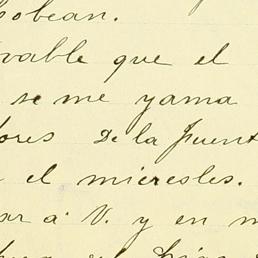 obean.
vable que el
se me yama
ores De la fuent
el miercoles.
ar a V. y en m